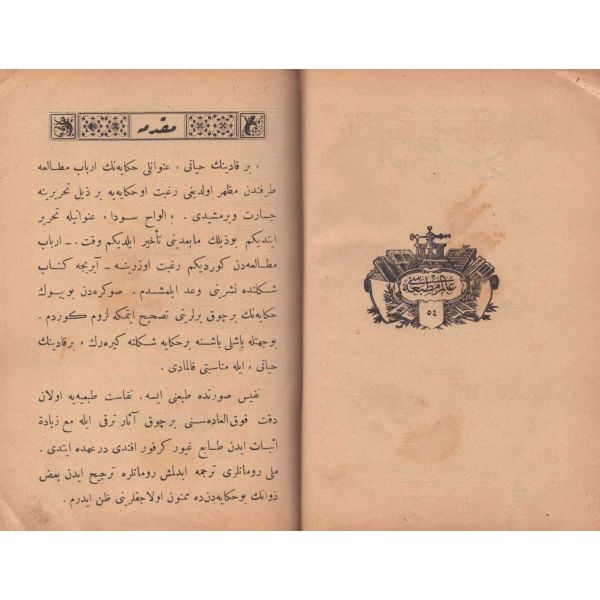 عالم مطبعه‌سی
٥٤
مقدمه
« بر قادینك حیاتی » عنوانلی حکایه‌نك ارباب مطالعه
طرفندن مظهر اولدیغی رغبت او حکایه‌یه بر ذیل تحریرینه
جسارت ویرمشیدی . « الواح سودا » عنوانیله تحریر
ایتدیکم بوذیلك مابعدینی تأخیر ایلدیکم وقت . ــ ارباب
مطالعه‌دن کوردیکم رغبت اوزرینه ــ آیریجه کتاب
شکلنده نشرینی وعد ایلمشدم . صوکره‌دن بو بیوك
حکایه‌نك برچوق یرلرینی تصحیح ایتمکه لزوم کوردم .
بوجهتله باشلی باشنه برحکایه شکلنه کیره‌رك « برقادینك
حیاتی » ایله مناسبتی قالمادی .
نفیس صورتده طبعنی ایسه . نفاست طبعیه‌یه اولان
دقت فوق‌العاده‌سنی برچوق آثار ترقی ایله مع زیادة
اثبات ایدن طابع غیور کرقور افندی درعهده ایتدی .
ملی رومانلری ترجمه ایدلمش رومانلره ترجیح ایدن بعض
ذواتك بوحکایه‌دن‌ده ممنون اولاجقلرینی ظن ایدرم .